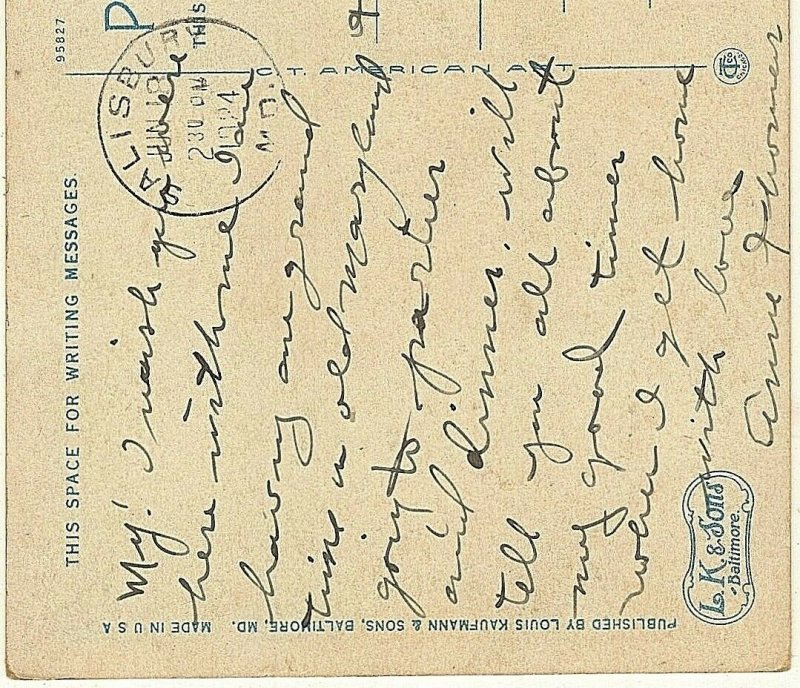 95827
P
THIS
THIS SPACE FOR WRITING MESSAGES.
C.T. AMERICAN ART
SALISBURY
JUN 18
2 30 PM
1924
MD.
My! I wish you were
here with me I am
having one grand
time in old Maryland
going to parties
and dinners, will
tell you all about
my good times
when I get home
with love
Anne
L.K. & Sons
Baltimore.
PUBLISHED BY LOUIS KAUFMANN & SONS, BALTIMORE, MD. MADE IN U S A